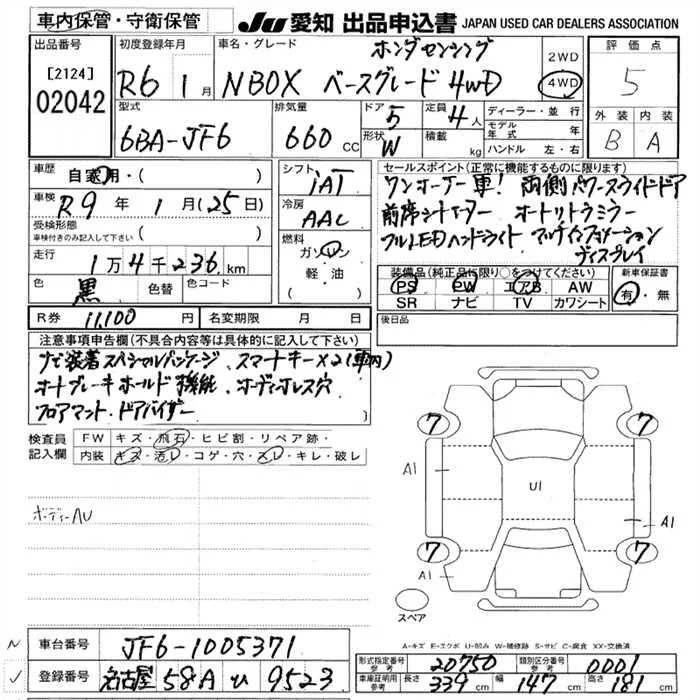 車内保管・守衛保管 JU 愛知 出品申込書 JAPAN USED CAR DEALERS ASSOCIATION
出品番号 [2124] 02042
初度登録年月 R6 1月
車名・グレード ホンダセンシング
NBOX ベースグレード 4WD
2WD 4WD
評価点 5
外装 内装
B A
型式 6BA-JF6
排気量 660 cc
ドア 5 形状 W
定員 4人 積載 kg
ディーラー・並行
モデル年式 年
ハンドル 左・右
車歴 自家用・( )
車検 R9年 1月(25日)
受検形態 車検付きのみ記入して下さい ( )
走行 1万4千236km
色 黒 色替 色コード
シフト iAT
冷房 AAC
燃料 ガソリン 軽油 ( )
セールスポイント(正常に機能するものに限ります)
ワンオーナー車! 両側パワースライドドア
前席シートエアー オートリトラミラー
フルLEDハンドライト マルチインフォメーション
ディスプレイ
装備品(純正品に限り○をつけてください)
PS PW エアB AW
SR ナビ TV カワシート
新車保証書 有・無
R券 11,100円 名変期限 月 日
後日品
注意事項申告欄(不具合内容等は具体的に記入して下さい)
ナビ装着スペシャルパッケージ、スマートキー×2(車内)
オートブレーキホールド機能、ボディホレス穴
フロアマット、ドアバイザー
検査員記入欄 FW キズ・飛石・ヒビ割・リペア跡・
内装 キズ・汚レ・コゲ・穴・スレ・キレ・破レ
ボディーAU
7 7
A1 U1 A1
7 7
A1
スペア
A-キズ E-エクボ U-凹み W-補修跡 S-サビ C-腐食 XX-交換済
車台番号 JF6-1005371
登録番号 名古屋 58A う 9523
形式指定番号 参考 20750 類別区分番号 参考 0001
車庫証明用 参考 長さ 339cm 幅 147cm 高さ 181cm